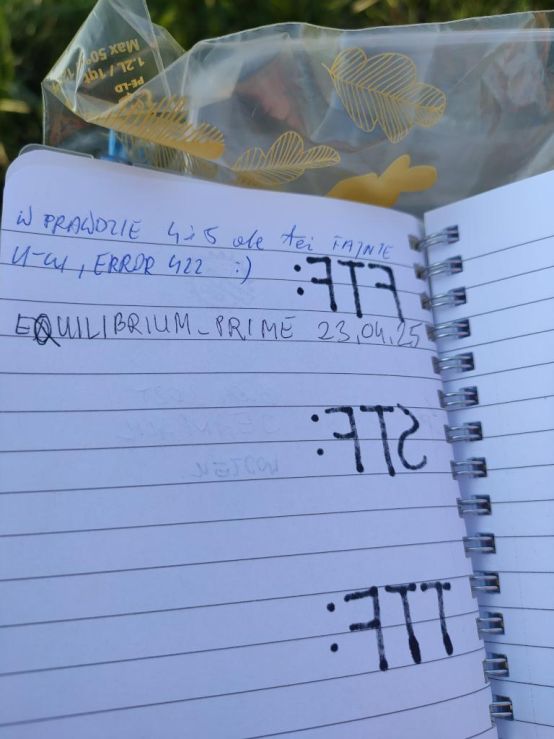 PE-LD
1.2L / 1qt
Max 50°
W PRAWDZIE 4 i 5 ale też FAJNIE
ERROR 422 :)
FTF:
EQUILIBRIUM_PRIME 23.04.25
STF:
TTF: